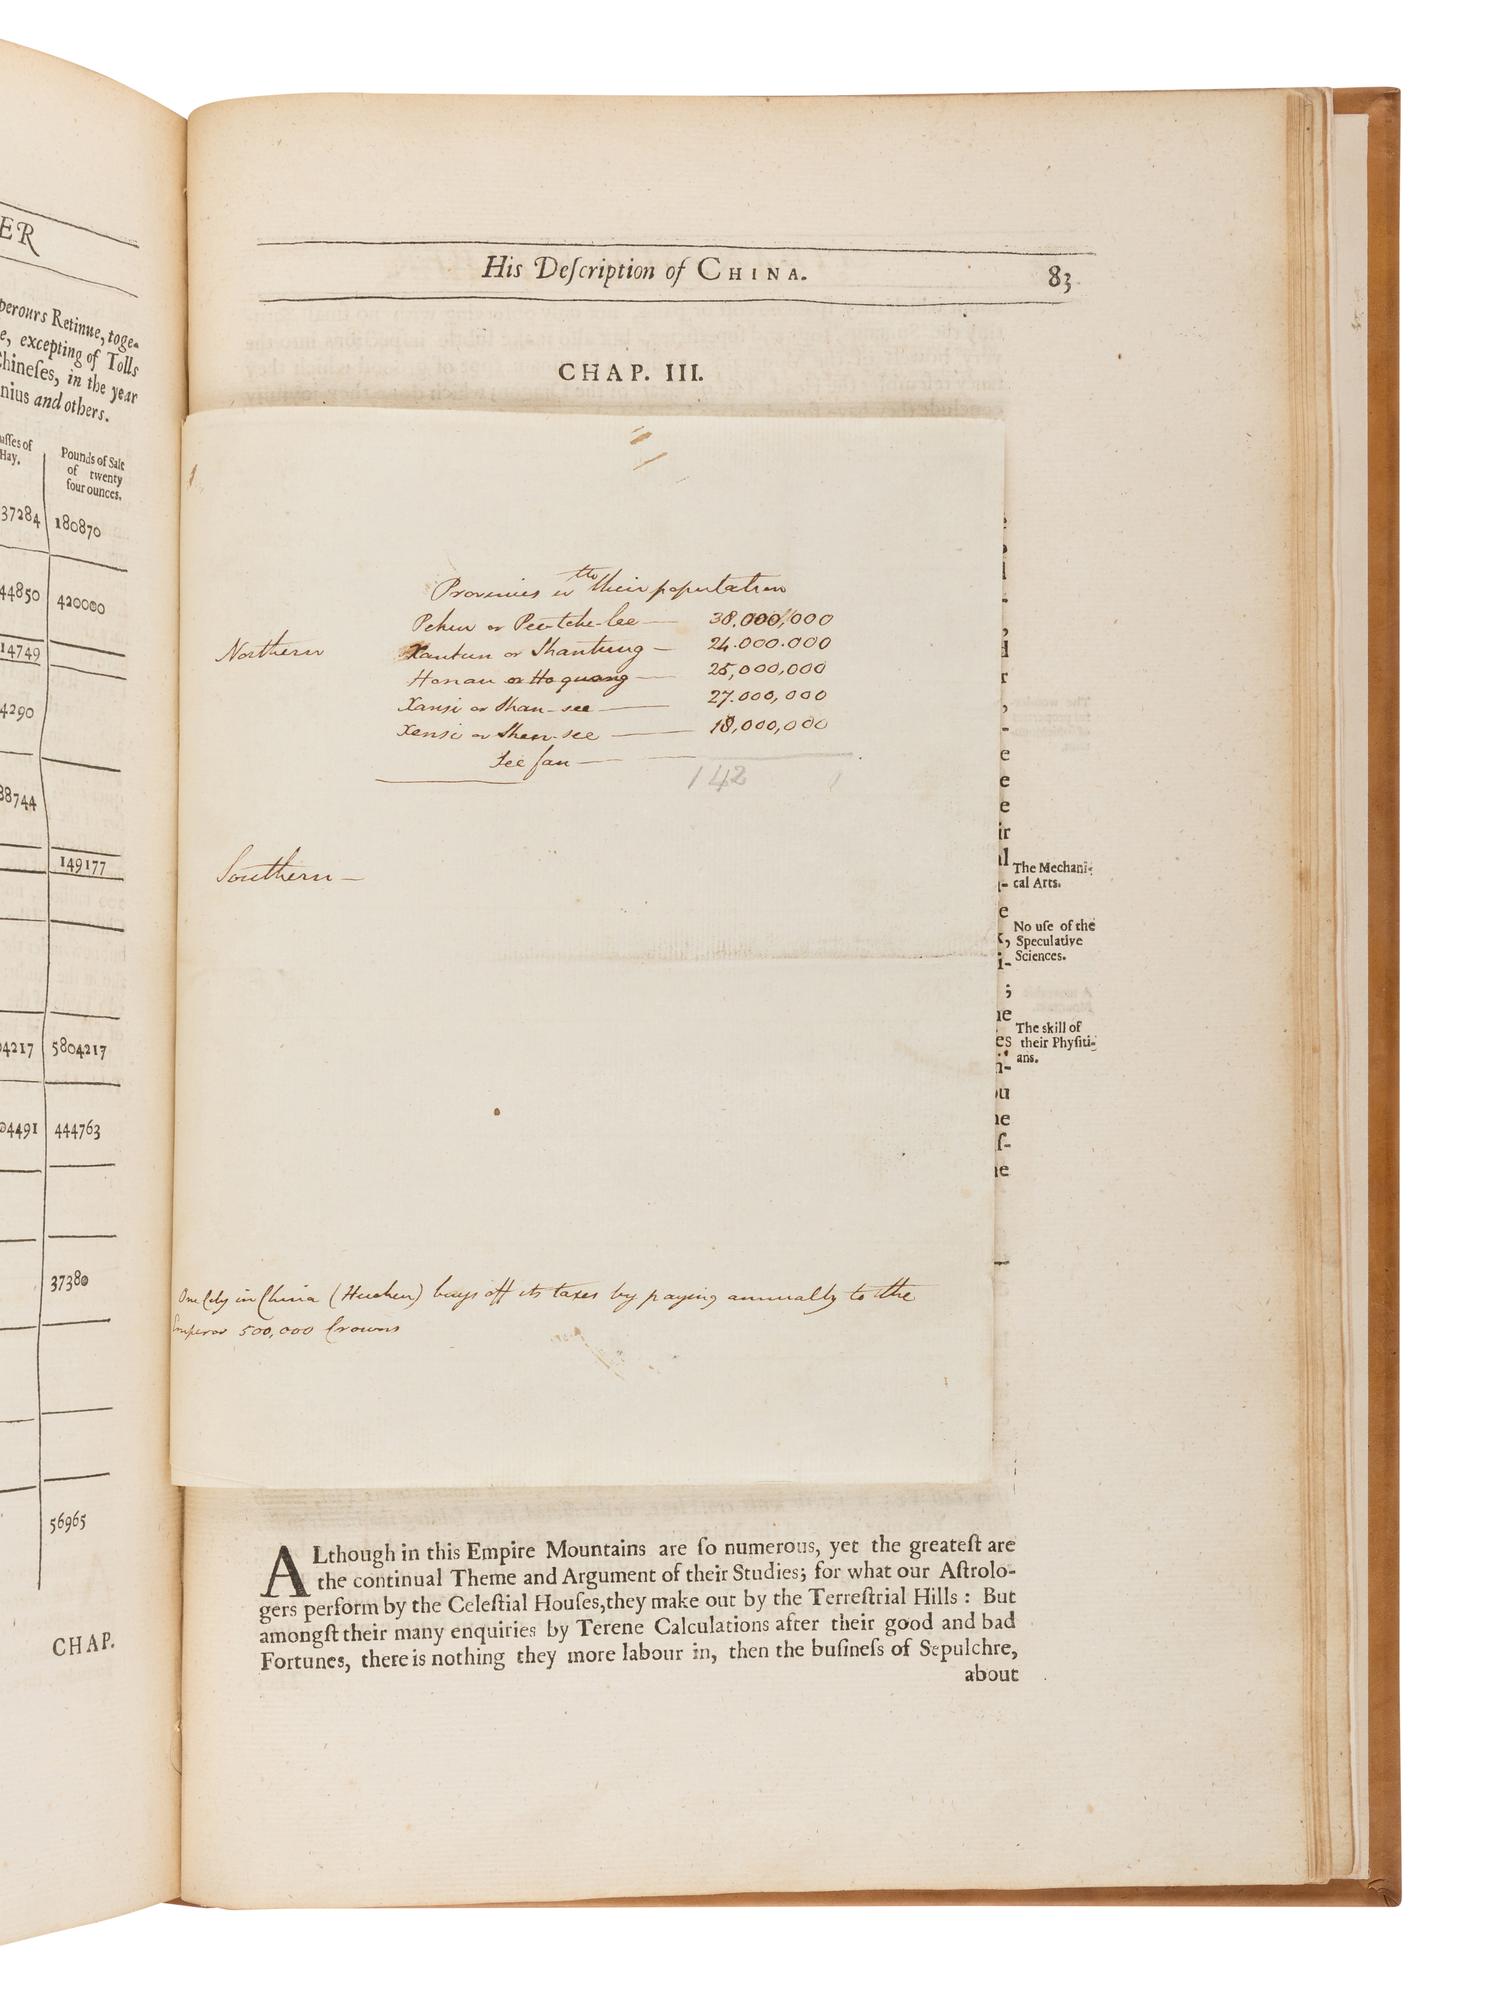 ER
perours Retinue, toge-
e, excepting of Tolls
hineſes, in the year
nius and others.
aſſes of
Hay.
Pounds of Salt
of twenty
four ounces.
37284 180870
44850 420000
14749
4290
38744
149177
04217 5804217
04491 444763
37380
56965
CHAP.
His Deſcription of CHINA. 83
CHAP. III.
Provinces & their population
Pekin or Pee-tche-lee — 38,000,000
Northern
Xantun or Shantung — 24.000.000
Honan or Hoquang — 25,000,000
Xansi or Shan-see — 27.000,000
Xensi or Shen-see — 18,000,000
See fan —
142
Southern —
One City in China (Hucheu) buys off its taxes by paying annually to the
Emperor 500,000 Crowns
The Mechani-
cal Arts.
No uſe of the
Speculative
Sciences.
The skill of
their Phyſiti-
ans.
ALthough in this Empire Mountains are ſo numerous, yet the greateſt are
the continual Theme and Argument of their Studies; for what our Aſtrolo-
gers perform by the Celeſtial Houſes, they make out by the Terreſtrial Hills : But
amongſt their many enquiries by Terene Calculations after their good and bad
Fortunes, there is nothing they more labour in, then the buſineſs of Sepulchre,
about